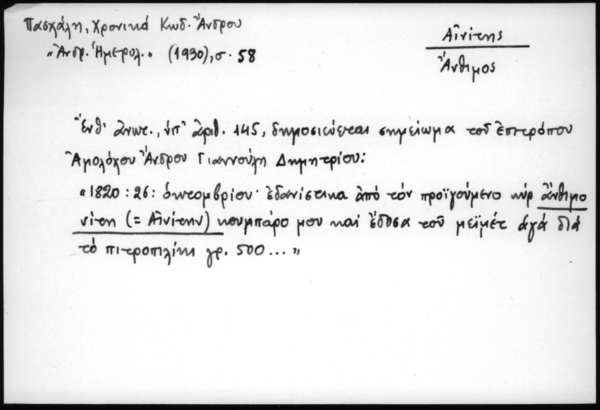 Πασχάλη, Χρονικά Κωδ. Ἄνδρου
"Ἀνδρ. Ἡμερολ." (1930), σ. 58
Αἰνίτης
Ἄνθιμος
Ἔνθ' ἀνωτ., ὑπ' ἀριθ. 145, δημοσιεύεται σημείωμα τοῦ ἐπιτρόπου
Ἀμολόχου Ἄνδρου Γιαννούλη Δημητρίου:
"1820 : 26 : ὀκτομβρίου· ἐδανίστικα ἀπὸ τὸν προϊγούμενο κὺρ ἄνθιμο
νίτη (= Αἰνίτην) κουμπάρο μου καὶ ἔδοσα τοῦ μεϊμὲτ ἀγᾶ διὰ
τὸ πιτροπιλίκι γρ. 500 ... "